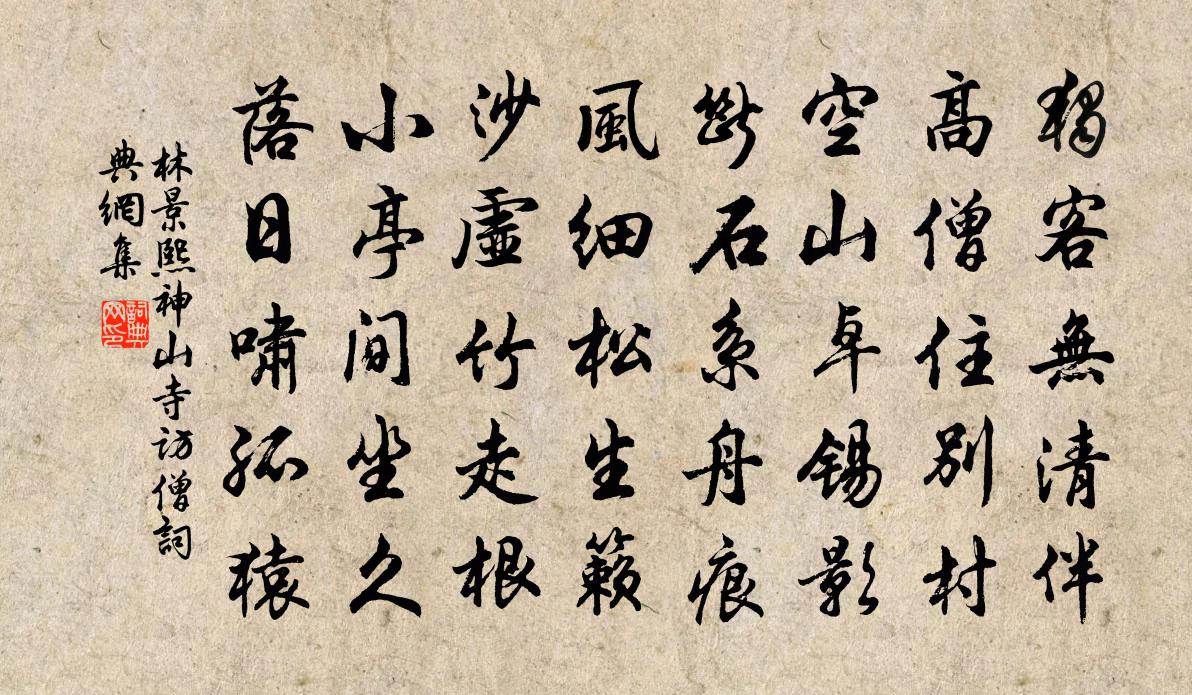 獨客無清伴
高僧住別村
空山卓錫影
斷石系舟痕
風細松生籟
沙虛竹走根
小亭閒坐久
落日嘯孤猿
林景熙神山寺訪僧詞
典網集
詞典
网印